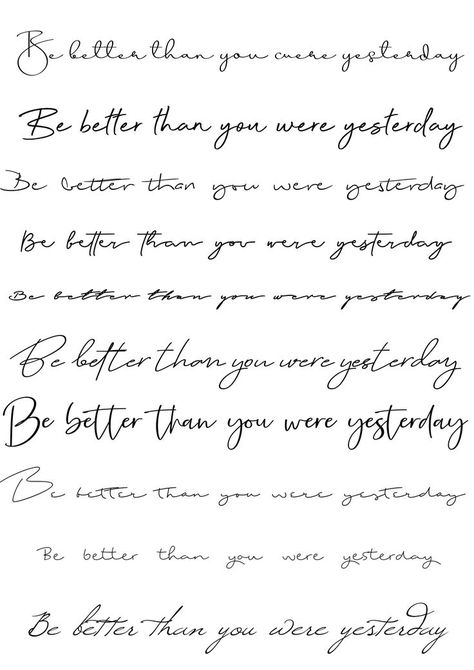 Be better than you were yesterday
Be better than you were yesterday
Be better than you were yesterday
Be better than you were yesterday
Be better than you were yesterday
Be better than you were yesterday
Be better than you were yesterday
Be better than you were yesterday
Be better than you were yesterday
Be better than you were yesterday